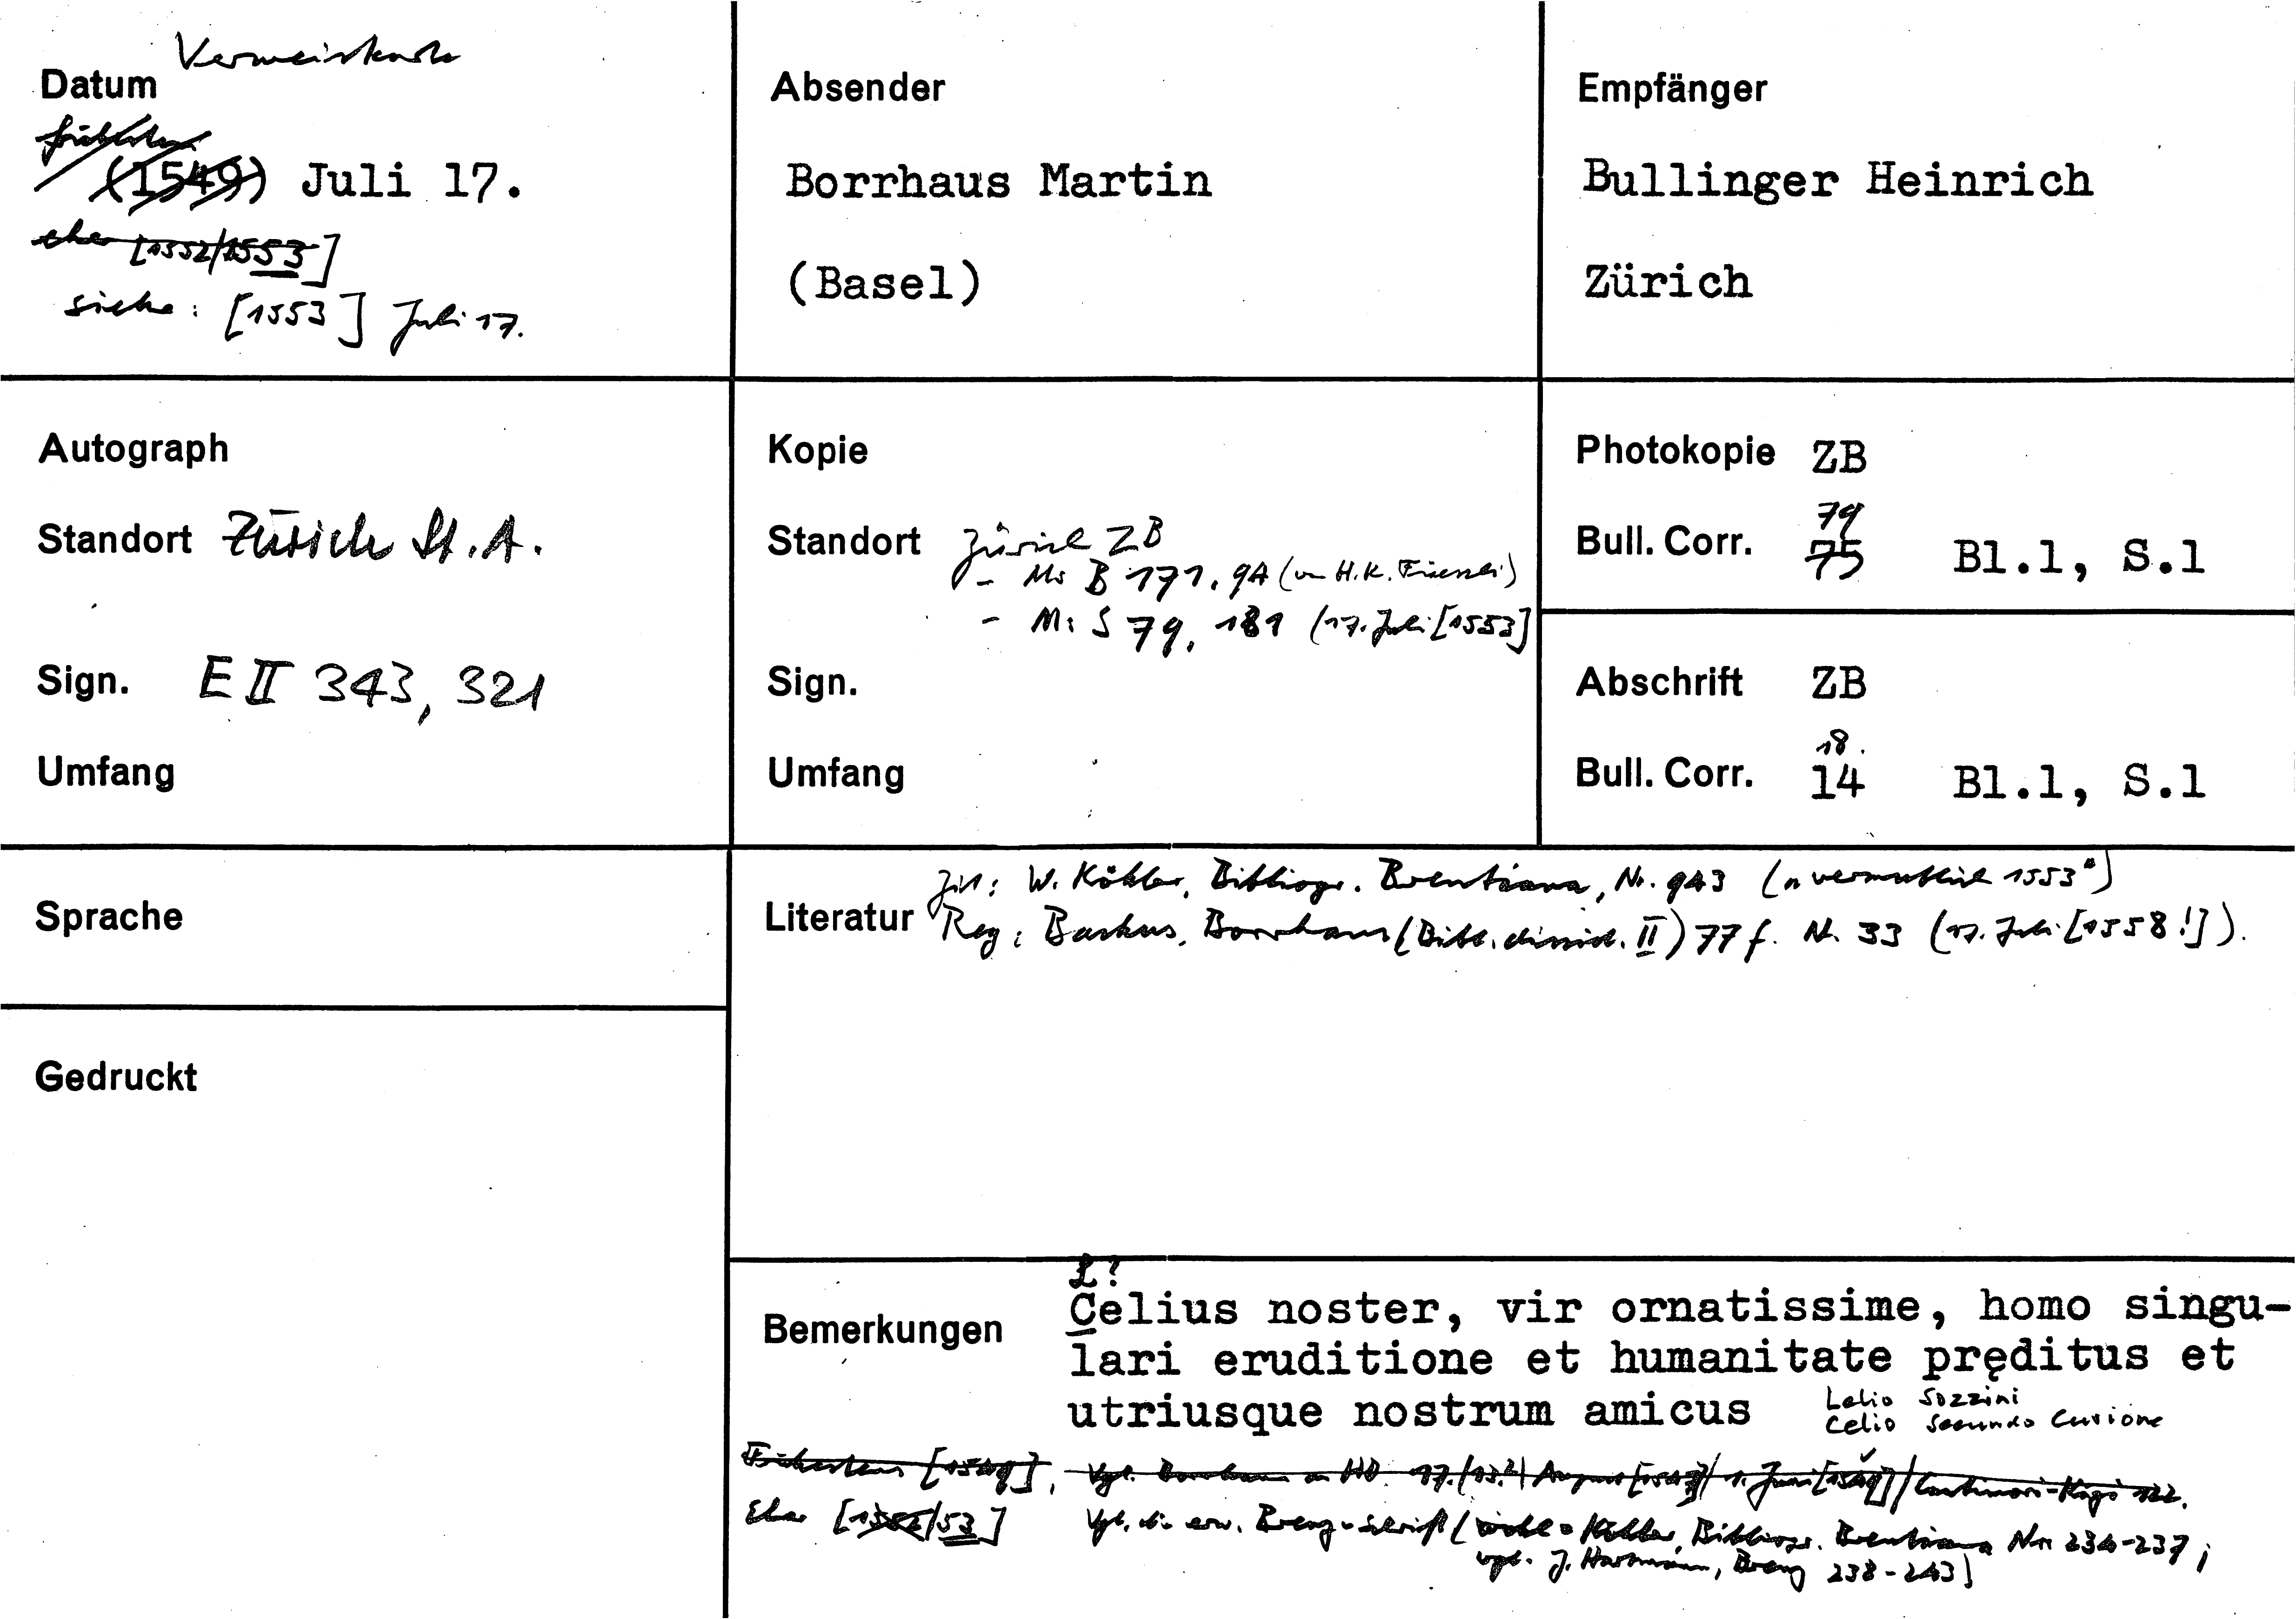 Verweiskarte
Datum
frühestens
(1549) Juli 17.
eher [1552/1553]
siehe: [1553] Juli 17.
Absender
Borrhaus Martin
(Basel)
Empfänger
Bullinger Heinrich
Zürich
Autograph
Standort Zürich St.A.
Sign. E II 343, 321
Umfang
Kopie
Standort Zürich ZB
- Ms B 171, 9A (von H.K. Füessli)
- Ms S 79, 181 (17. Juli [1553]
Sign.
Umfang
Photokopie ZB
79
Bull. Corr. 75 Bl.1, S.1
Abschrift ZB
18.
Bull. Corr. 14 Bl.1, S.1
Sprache
Zit: W. Köhler, Bibliogr. Brentiana, Nr. 943 („vermutlich 1553“)
Literatur Reg: Backus, Borrhaus (Bibl. dissid. II) 77 f. Nr. 33 (17. Juli [1558!]).
Gedruckt
L?
Bemerkungen Celius noster, vir ornatissime, homo singu-
lari eruditione et humanitate pręditus et
utriusque nostrum amicus
Lelio Sozzini
Celio Secundo Curione
Frühestens [1549], Vgl. Borrhaus an HB 17. (13.?) August [1547] / 1. Juni [1549] / Cantimori-Kägi 122.
Eher [1552/53] Vgl. die erw. Brenz-Schrift (wohl = Köhler, Bibliogr. Brentiana Nr. 234-237;
vgl. J. Hartmann, Brenz 238-243)